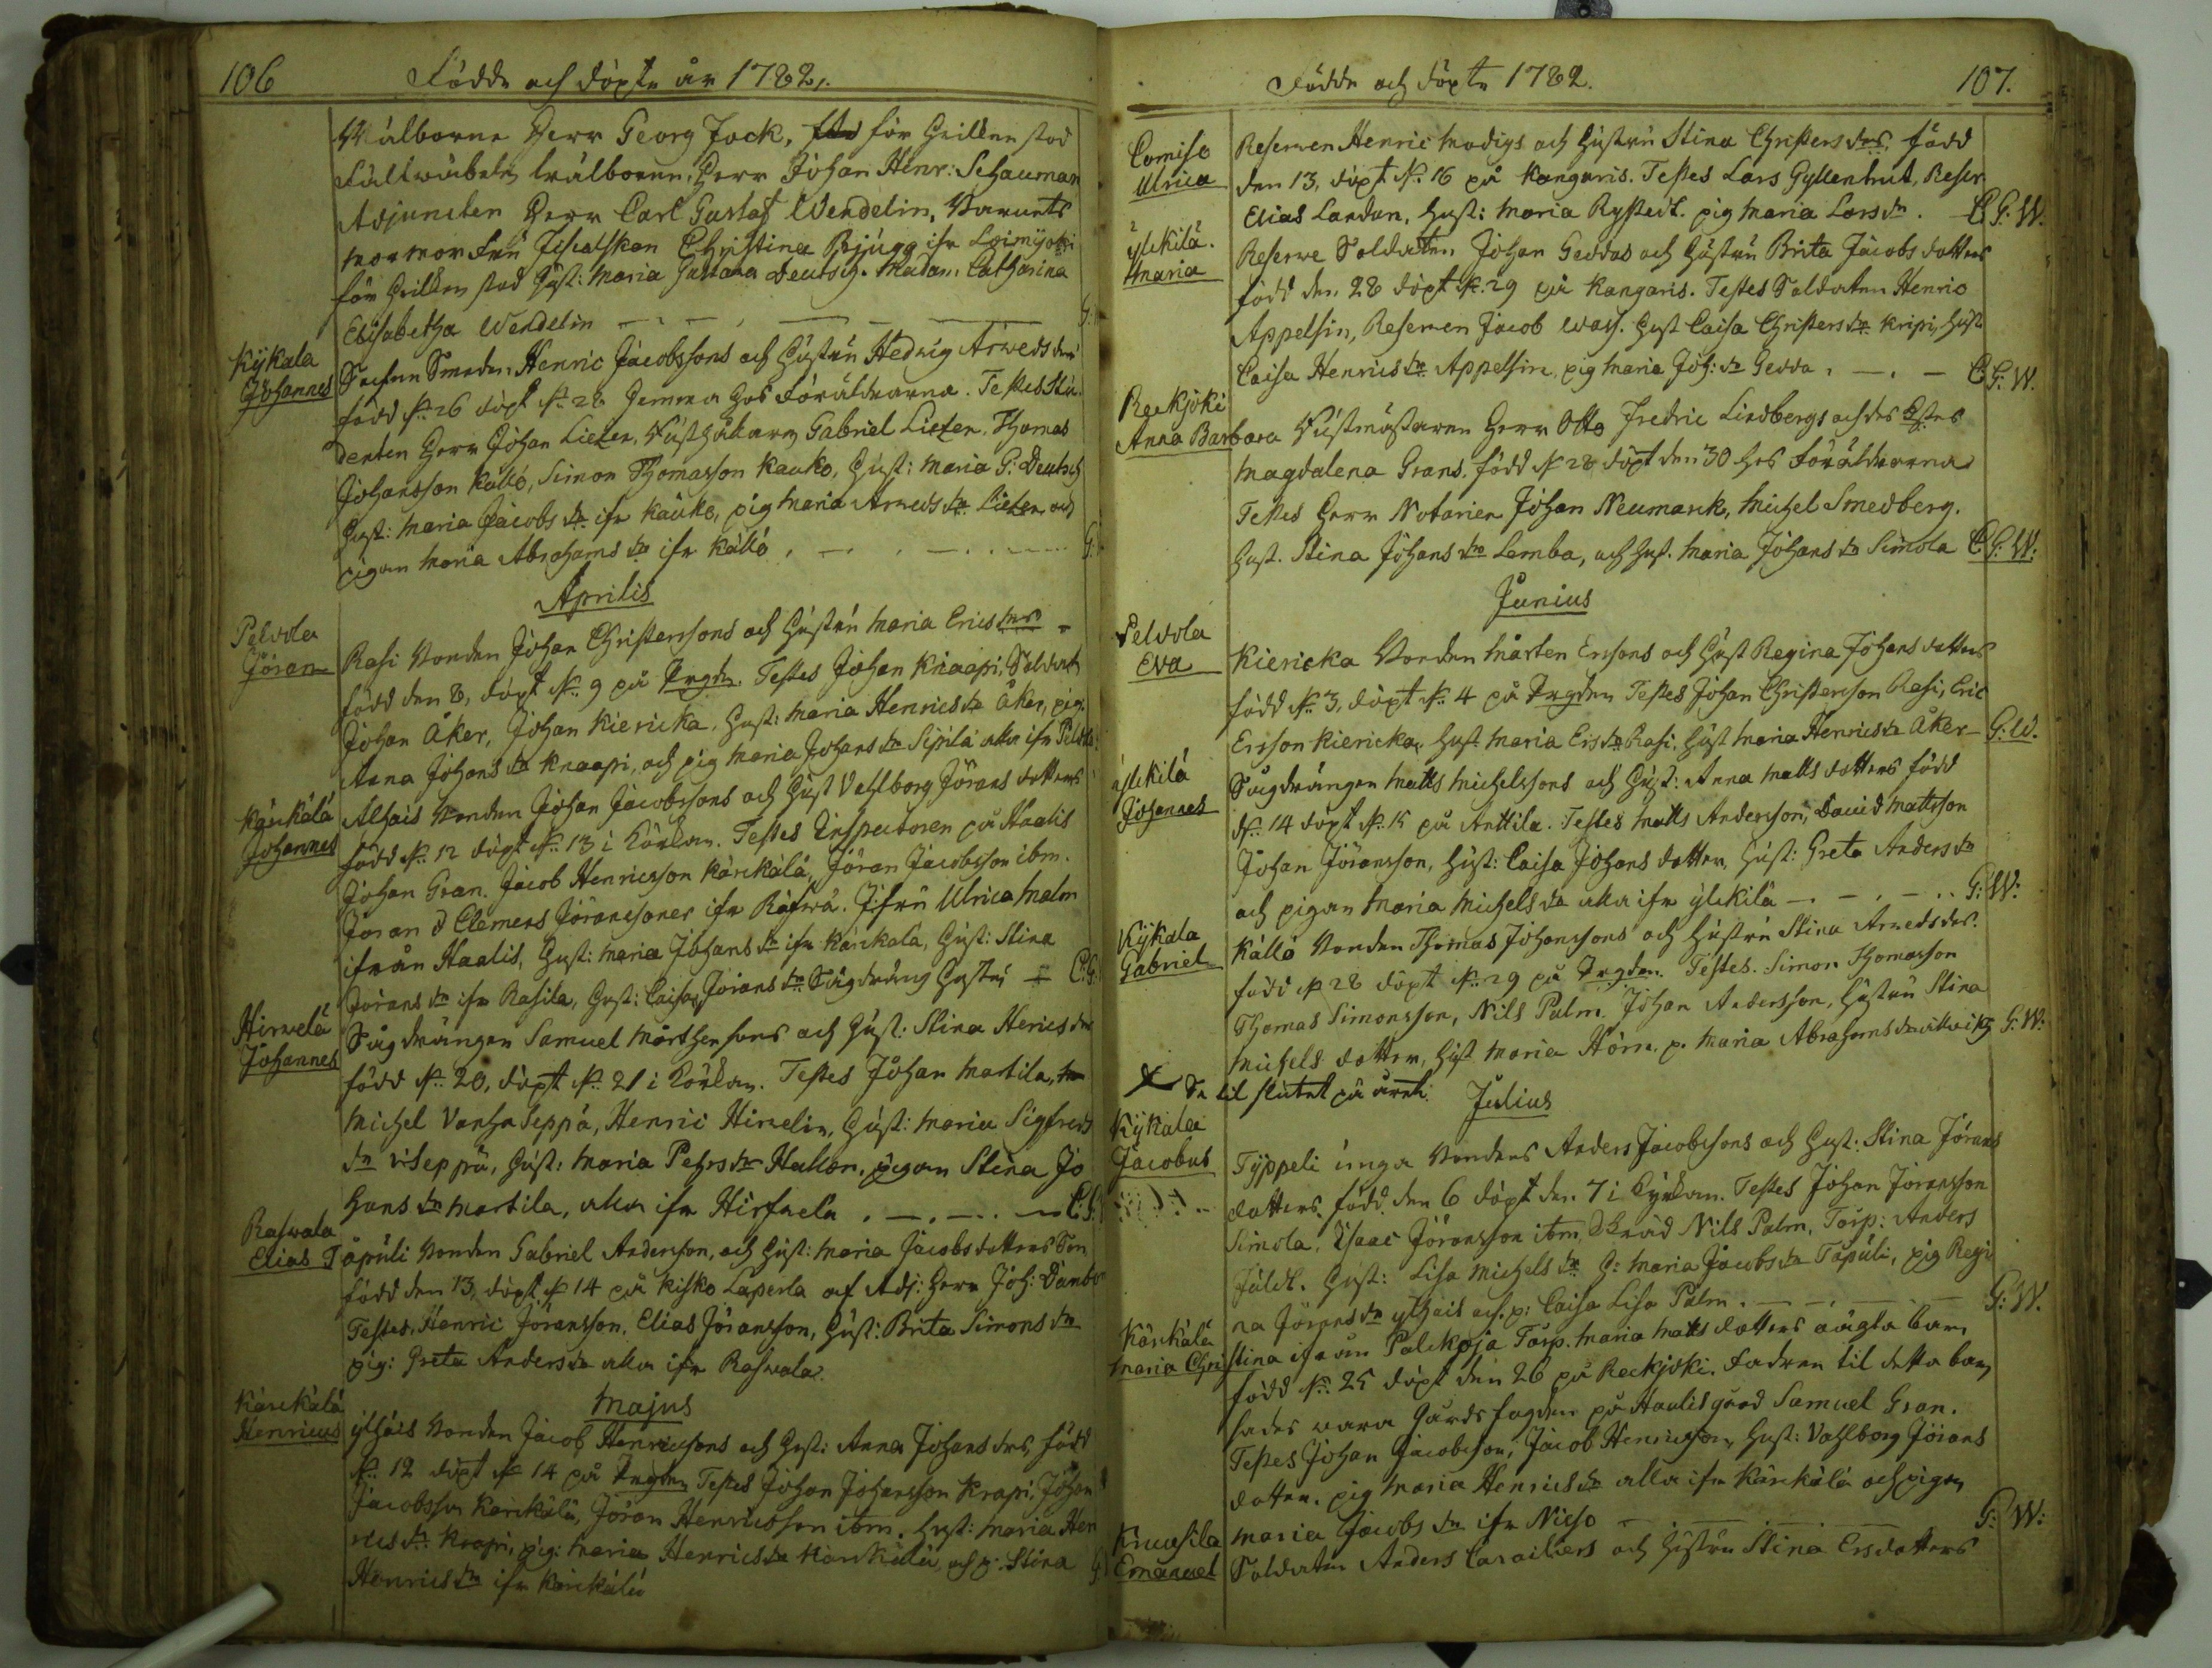 106 Födde och döpte år 1782.
Wälborne Herr Georg Jack, för hvilken stod
Fältwäbeln wälborne Herr Johan Henr: Schauman
Adjuncten Herr Carl Gustaf Wendelin, Barnets
mormor Fru Christina Bjugg ifr Loimijoki
för hvilken stod Hust: Maria Gustava Deutsch. Madam Catharina
Elisabetha Wendelin
Kijkala
Johannes
Sochne Smeden Henric Jacobssons och Hustru Hedvig Arwedsdrs
född N. 26 döpt N. 28 hemma hos Föräldrarna. Testes Stu-
denten Herr Johan Lietzen, Gabriel Lietzen, Thomas
Johansson Källö, Simon Thomasson Kauko, Hust: Maria G: Deutsch
Hust: Maria Jacobs dr ifr Kauko, pig Maria Arweds dr Lietzen och
pigan Maria Abrahams dr ifr Källö
G:
Aprilis
Pelvola
Jöran
Rasi Bonden Johan Christerssons och Hustru Maria Ericsdrs
född den 8, döpt N. 9 på Prgdn. Testes Johan Knaapi, Soldat
Johan Åker, Johan Kiericka, Hust: Maria Henricsdr Åker, pig.
Anna Johansdr Knaapi, och pig Maria Johansdr Sipilä alla ifr Pelvola
Kärikälä
Johannes
Alhais Bonden Johan Jacobssons och Hust Vahlborg Jörans dotters
född N. 12 döpt N. 13 i Körkan. Testes Inspectoren på Haalis
Johan Gran. Jacob Henricsson Kärikälä, Jöran Jacobsson ibm.
Jöran o Clemens Jöranssoner ifr Rajwä. Jfru Ulrica Malm
ifrån Haalis, Hust: Maria Johansdr ifr Kärikälä, Hust: Stina
Jöransdr ifr Rasila, Hust: Caisa Jöransdr Sågdräng Hustru C:G.
Hirwelä
Johannes
Sågdrängen Samuel Mårthenssons och Hust: Stina Henricsdrs
född N. 20, döpt N. 21 i Körkan. Testes Johan Martila,
Michel Vanha Seppä, Henric Hirvelin, Hust: Maria Sigfreds
dr v: Seppä, Hust: Maria Pehrsdr Hallon, pigan Stina Jo
hans dr Martila, alla ifr Hirfvela C.G.
Raswala
Elias
Täpuli Bonden Gabriel Andersson, och Hust: Maria Jacobsdotters Son
född den 13, döpt N 14 på Kisko Laperla af Adj: Herr Joh:
Testes, Henric Jöransson, Elias Jöransson, Hust: Brita Simonsdr
pig: Greta Andersdr alla ifr Raswala.
Majus
Kärikälä
Henricus
Ylhäis Bonden Jacob Henricssons och Hust: Anna Johans drs, född
N. 12 döpt N 14 på Prgdn Testes Johan Johansson Krapi, Johan
Jacobsson Kärikälä, Jöran Henricsson ibm. Hust: Maria Hen
rics dr. Krapi, pig: Maria Henricsdr Kärikälä, och p: Stina
Henricsdr ifr Kärikälä
G
Födde och döpte 1782. 107.
Comiso
Ulrica
Reserven Henric Modigs och Hustru Stina Christers drs. född
den 13, döpt N. 16 på Kangaris. Testes Lars Gyllenhut, Reser
Elias Landan, Hust: Maria Rystedt. pig Maria Larsdr. C G: W.
ylikilä.
Maria
Reserve Soldaten Johan Geddas och Hustru Brita Jacobs dotters
född den 28 döpt N. 29 på Kangaris. Testes Soldaten Henric
Appelsin, Reserven Jacob Wass. Hust Caisa Christersdr Kripi, Hust
Caisa Henricsdr Appelsin, pig Maria Joh: dr Gedda C G: W.
Reckjoki
Anna Barbara
Rustmästaren Herr Otto Fredric Lindbergs och des Hstrs
Magdalena Grans. född N 28 döpt den 30 hos Föräldrarna
Testes Herr Notarien Johan Neumarck, Michel Smedberg.
Hust. Stina Johansdr Lemba, och Hust. Maria Johansdr Simola C G: W.
Junius
Pelvola
Eva
Kiericka Bonden Mårten Erssons och Hust Regina Johans dotters
född N. 3, döpt N. 4 på Prgden Testes Johan Christersson Rasi, Eric
Ersson Kiericka, Hust Maria Ersdr Rasi, Hust Maria Henricsdr Åker G: W.
ylikilä
Johannes
Sågdrängen Matts Michelssons och Hust: Anna Matts dotters född
N. 14 döpt N. 15 på Anttila. Testes Matts Andersson, David Mattsson
Johan Jöransson, Hust: Caisa Johans dotter, Hust: Greta Andersdr
och pigan Maria Michelsdr alla ifr ylikilä G: W:
Kijkala
Gabriel
Källö Bonden Thomas Johanssons och Hustru Stina Arvedsdrs.
född N 28 döpt N. 29 på Prgden. Testes. Simon Thomasson
Thomas Simonsson, Nils Palm, Johan Andersson, Hustru Stina
Michels dotter, Hust Maria Hörn, p. Maria Abrahamsdr G: W:
Se til slutet på året.
Julius
Kijkala
Jacobus
Typpeli unga Bondens Anders Jacobssons och Hust: Stina Jörans
dotters, född den 6 döpt den 7 i Kyrkan. Testes Johan Jöransson
Simola, Isaac Jöransson ibm, Nils Palm, Torp: Anders
Fäldt. Hust: Lisa Michelsdr H: Maria Jacobsdr Täpuli, pig Regi
na Jöransdr ylhäis och p: Caisa Lisa Palm. G: W.
Kärikälä
Maria Christina
ifrån Palikoja Torp. Maria Matts dotters oägta barn
född N. 25 döpt den 26 på Reckjoki. Fadren til detta barn
sades vara Gårdsfogden på Haalis gård Samuel Gran.
Testes Johan Jacobsson, Jacob Henricsson, Hust: Vahlborg Jörans
dotter. pig Maria Henricsdr alla ifr Kärikälä och pigan
Maria Jacobs dr ifr Nicso G: W:
Kruusila
Emanuel
Soldaten Anders Caraibiers och Hustru Stina Ersdotters